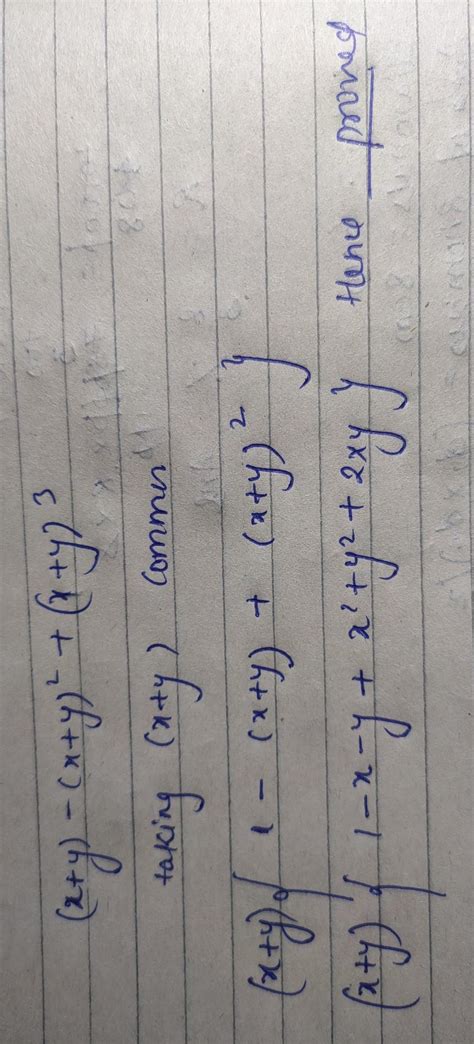 (x+y) - (x+y)² + (x+y)³
taking (x+y) common
(x+y) { 1 - (x+y) + (x+y)² }
(x+y) { 1 - x - y + x² + y² + 2xy } Hence proved